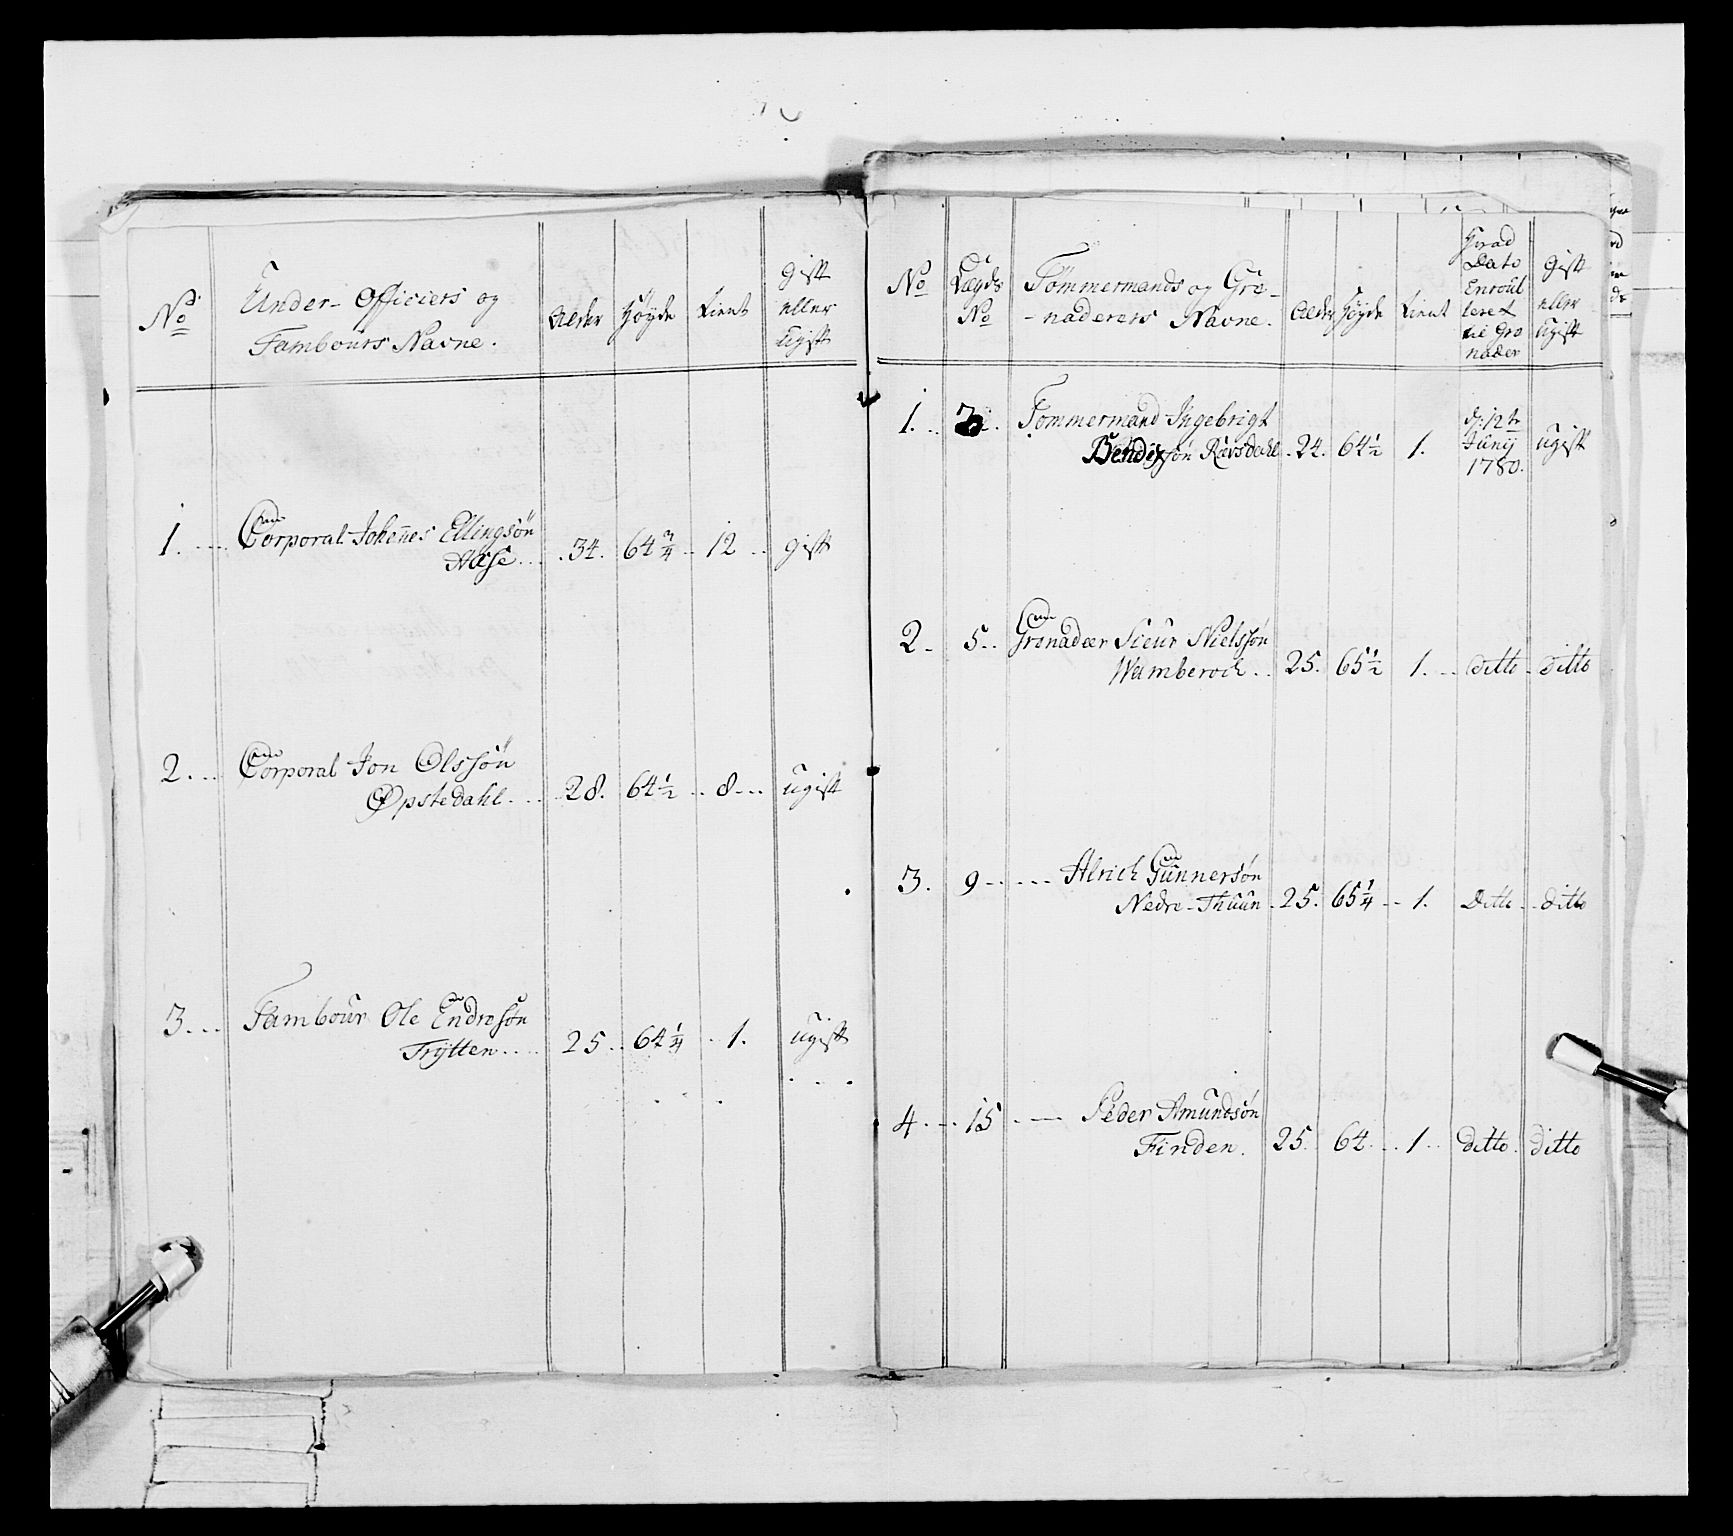 No
Under-Officiers og
Tambours Navne.
Alder
Høyde
Tient
gift
eller
ugift
1.
Corporal Johenes Ellingsøn
Aase
34.
64 3/4
12
gift
2.
Corporal Jon Olssøn
Opstedahl.
28.
64 1/2
8
ugift
3.
Tambour Ole Endresøn
Trytten
25
64 1/4
1.
ugift
No
Lægds
No
Tømmermands og Gre-
-naderers Navne.
Alder
Høyde
Tient
Hvad
Dato
Enroul
leret
til Gre
nader
Gift
eller
ugift
1.
Tømmermand Ingebrigt
Bendixsøn Ravsdahl
24.
64 1/2
1.
d: 12te
Junij
1780.
ugift
2
5
Grenadeer Sieur Nielssøn
25.
65 1/2
1.
ditto
ditto
3.
9
Alrich Gunnersøn
Nedre-Thuun
25.
65 1/4
1.
Ditto
ditto
4
15
Peder Amundsøn
Finden.
25.
64
1
ditto
ditto